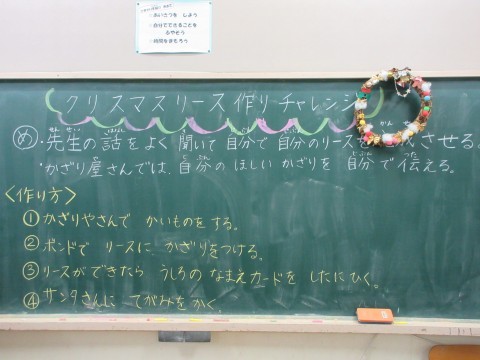 あいさつを しよう
自分でできることを
ふやそう
時間をまもろう
クリスマスリース作りチャレンジ
め ・先生の話をよく聞いて自分で自分のリースを 成させる。
・かざり屋さんでは、自分のほしいかざりを自分で伝える。
<作り方>
①かざりやさんで かいものをする。
②ボンドで リースに かざりをつける。
③リースができたら うしろの なまえカードを したにひく。
④サンタさんに てがみをかく。